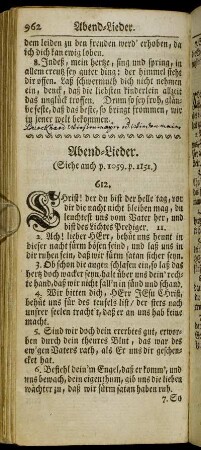 962 Abend-Lieder.
dem leiden zu den freuden werd' erhoben, da
ich dich kan ewig loben.
8. Indeß, mein hertze, sing und spring, in
allem creutz sey guter ding: der himmel steht
dir offen. Laß schwermuth dich nicht nehmen
ein, denck, daß die liebsten kinderlein allzeit
das unglück troffen. Drum so sey froh, glau-
be feste, daß das beste, so bringt frommen, wir
in jener welt bekommen.
Abend-Lieder.
(Siehe auch p. 1059. p. 1151.)
612.
Christ! der du bist der helle tag, vor
dir die nacht nicht bleiben mag, du
leuchtest uns vom Vater her, und
bist des lichtes Prediger. 11.
2. Ach! lieber HErr, behüt uns heunt in
dieser nacht fürm bösen feind, und laß uns in
dir ruhen sein, daß wir fürm satan sicher seyn.
3. Ob schon die augen schlafen ein, so laß das
hertz doch wacker seyn, halt über uns dein' rech-
te hand, daß wir nicht fall'n in sünd und schand.
4. Wir bitten dich, HErr JEsu Christ,
behüt uns für des teufels list, der stets nach
unser seelen tracht't, daß er an uns hab keine
macht.
5. Sind wir doch dein ererbtes gut, erwor-
ben durch dein theures Blut, das war des
ew'gen Vaters rath, als Er uns dir geschen-
cket hat.
6. Befiehl dein'm Engel, daß er komm', und
uns bewach, dein eigenthum, gib uns die lieben
wächter zu, daß wir fürm satan haben ruh.
7. So